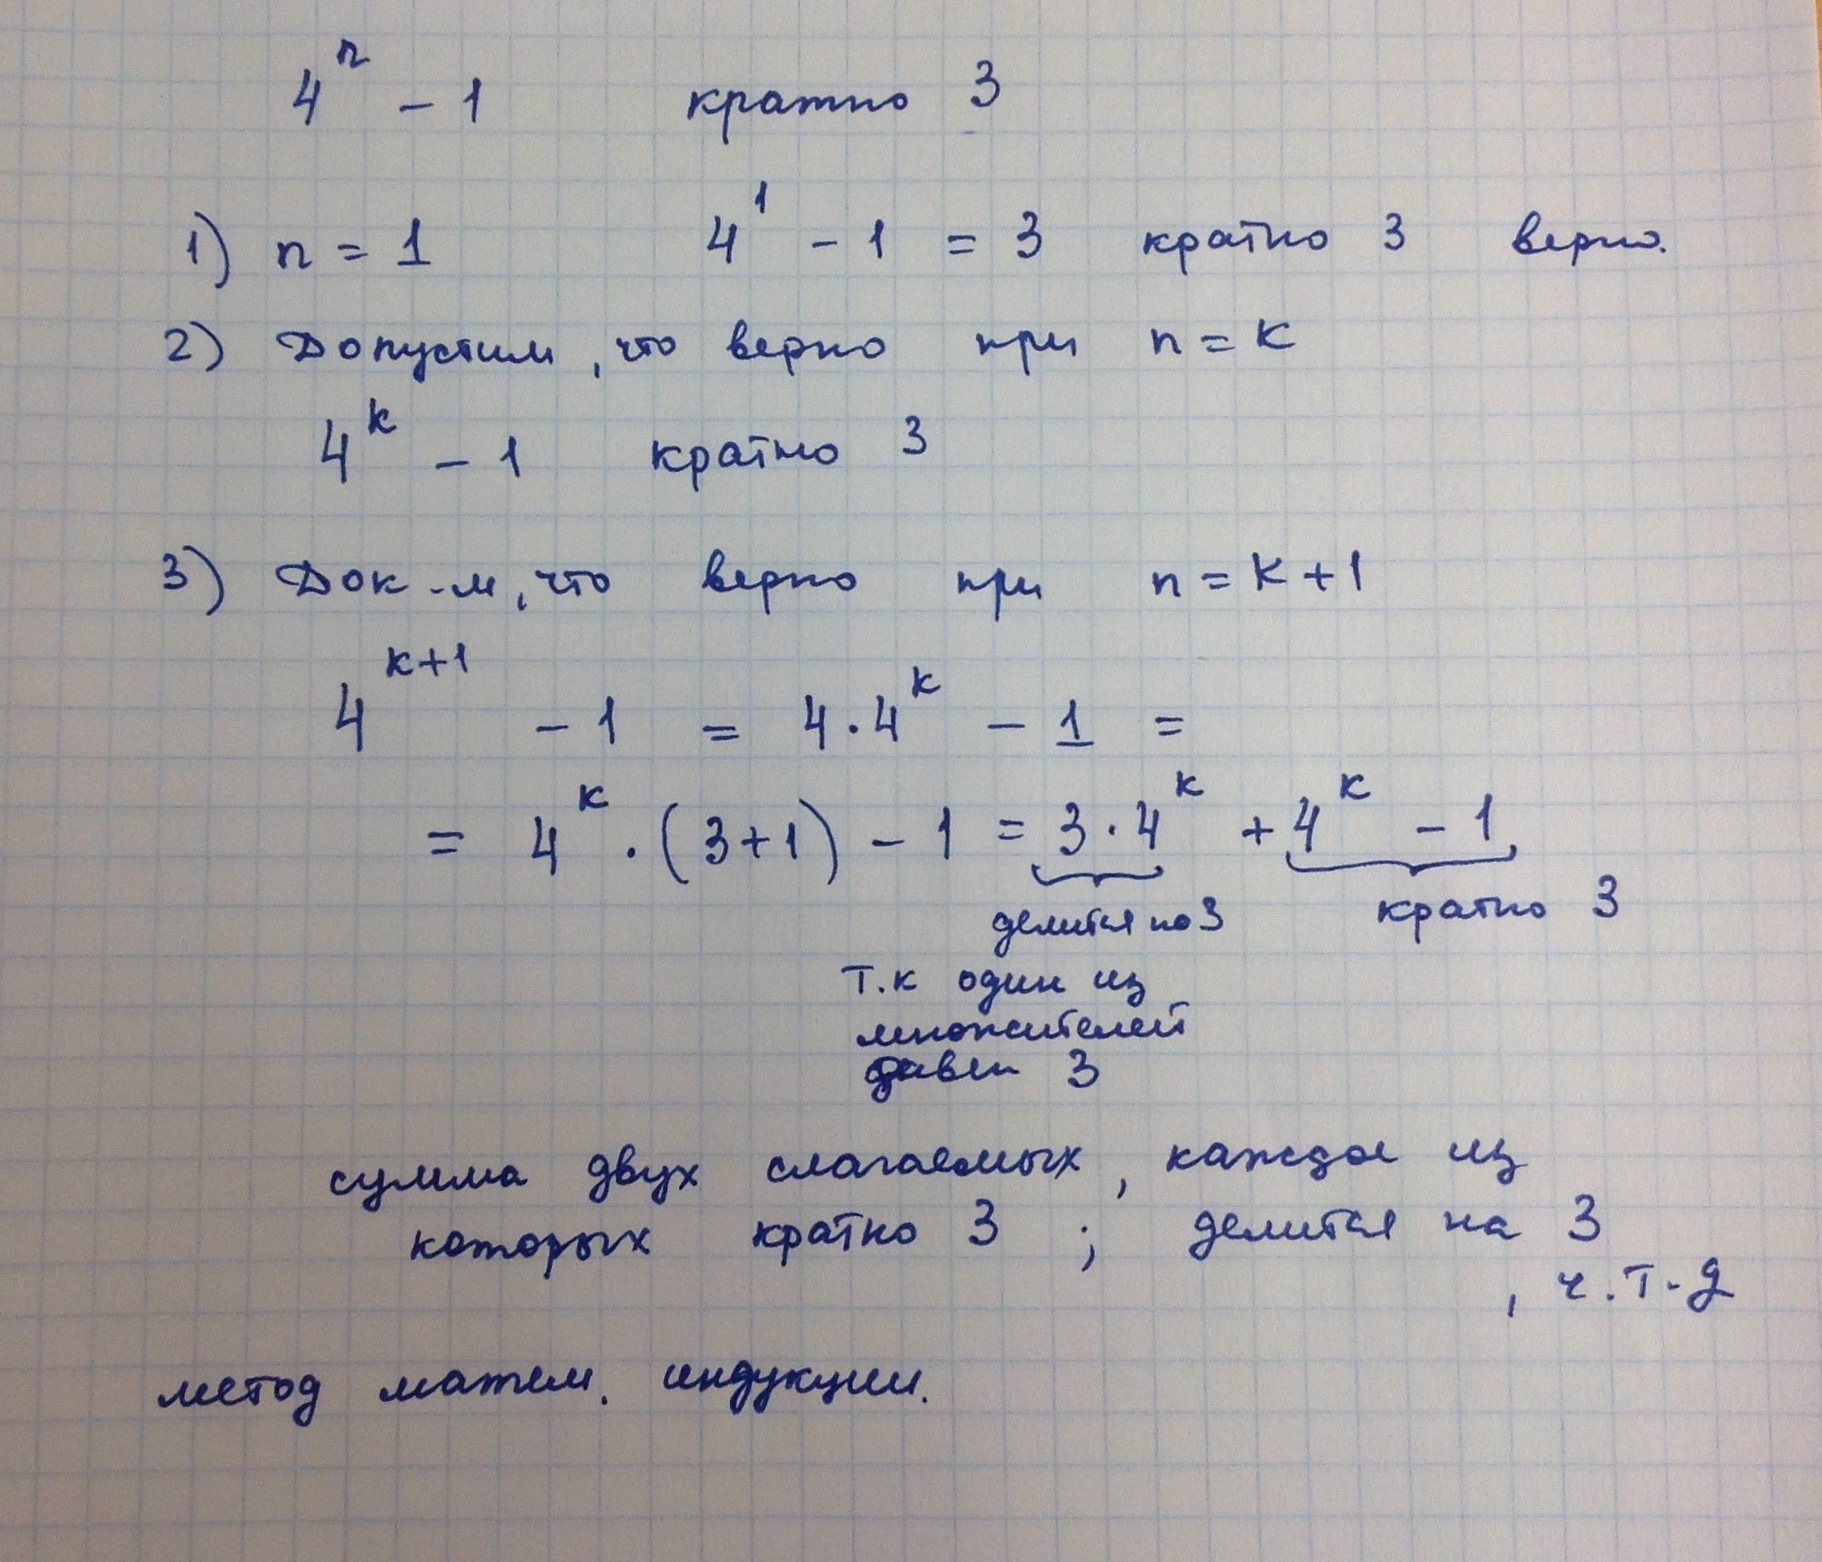 4ⁿ - 1 кратно 3
1) n = 1 4¹ - 1 = 3 кратно 3 верно.
2) Допустим, что верно при n = k
4ᵏ - 1 кратно 3
3) Док-м, что верно при n = k + 1
4ᵏ⁺¹ - 1 = 4 · 4ᵏ - 1 =
= 4ᵏ · (3+1) - 1 = 3 · 4ᵏ + 4ᵏ - 1
делится на 3 кратно 3
т.к один из
множителей
равен 3
сумма двух слагаемых, каждое из
которых кратно 3 ; делится на 3
, ч.т.д
метод матем. индукции.